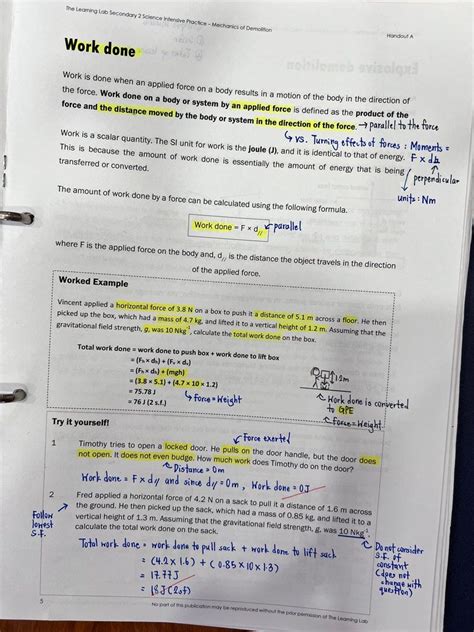 The Learning Lab Secondary 2 Science Intensive Practice – Mechanics of Demolition
Handout A
Work done
Work is done when an applied force on a body results in a motion of the body in the direction of
the force. Work done on a body or system by an applied force is defined as the product of the
force and the distance moved by the body or system in the direction of the force. → parallel to the force
↳ vs. Turning effects of forces : Moments =
F x d⊥
perpendicular
units: Nm
Work is a scalar quantity. The SI unit for work is the joule (J), and it is identical to that of energy.
This is because the amount of work done is essentially the amount of energy that is being
transferred or converted.
The amount of work done by a force can be calculated using the following formula.
Work done = F x d// ← parallel
where F is the applied force on the body and, d// is the distance the object travels in the direction
of the applied force.
Worked Example
Vincent applied a horizontal force of 3.8 N on a box to push it a distance of 5.1 m across a floor. He then
picked up the box, which had a mass of 4.7 kg, and lifted it to a vertical height of 1.2 m. Assuming that the
gravitational field strength, g, was 10 Nkg-1, calculate the total work done on the box.
Total work done = work done to push box + work done to lift box
= (Fh x dh) + (Fv x dv)
= (Fh x dh) + (mgh)
= (3.8 x 5.1) + (4.7 x 10 x 1.2)
= 75.78 J
= 76 J (2 s.f.)
↳ Force = Weight
1.2m
Work done is converted
to GPE
Force = Weight
Try it yourself!
Force exerted
1 Timothy tries to open a locked door. He pulls on the door handle, but the door does
not open. It does not even budge. How much work does Timothy do on the door?
Distance = 0m
Work done = F x d// and since d// = 0m, Work done = 0J
2 Fred applied a horizontal force of 4.2 N on a sack to pull it a distance of 1.6 m across
the ground. He then picked up the sack, which had a mass of 0.85 kg, and lifted it to a
vertical height of 1.3 m. Assuming that the gravitational field strength, g, was 10 Nkg-1
calculate the total work done on the sack.
Follow
lowest
S.F.
Total work done = work done to pull sack + work done to lift sack
= (4.2 x 1.6) + (0.85 x 10 x 1.3)
= 17.77 J
= 18 J (2sf)
Do not consider
S.F. of
constant
(does not
change with
question)
5
No part of this publication may be reproduced without the prior permission of The Learning Lab